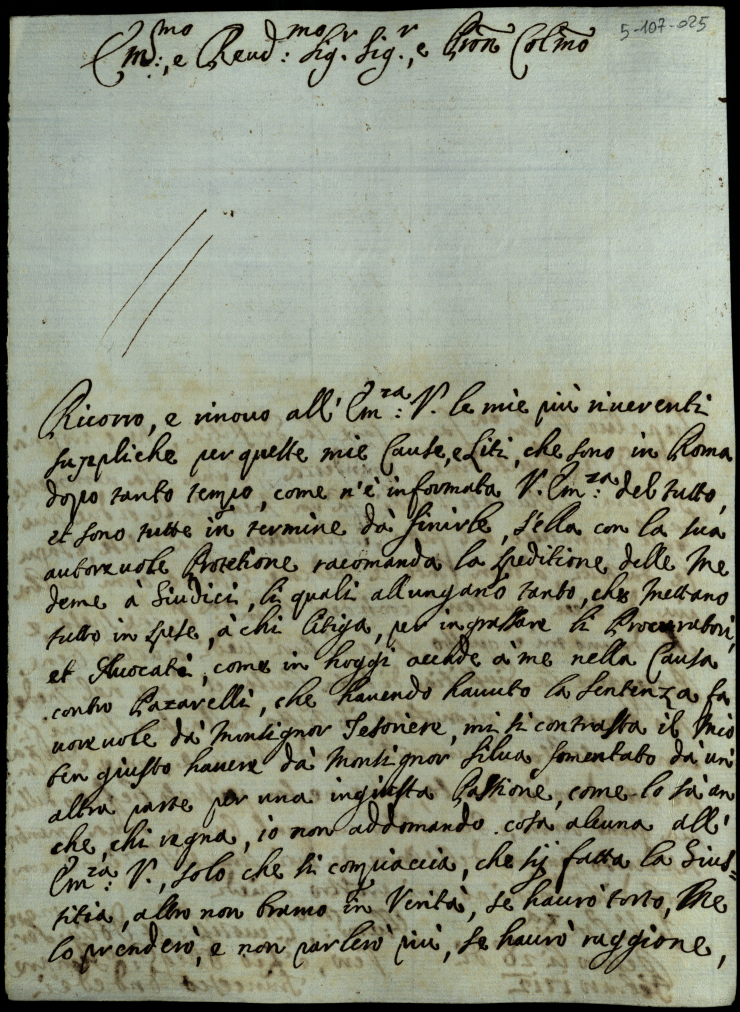 5-107-025
Em.mo, e Reud.mo Sig.r Sig.r, e Pron Colmo
Ricorro, e rinouo all' Em.za V. le mie più riuerenti
suppliche per queste mie Cause, e Liti, che sono in Roma
dopo tanto tempo, come n'è informata V. Em.za del tutto,
et sono tutte in termine dà finirle, s'ella con la sua
autoreuole Protetione racomanda la speditione delle Me
deme à Giudici, li quali allungano tanto, che mettano
tutto in spese, à chi litiga, per ingrassare li Procuratori,
et Auocati, come in hoggi accade à me nella Causa
contro Pazarelli, che hauendo hauuto la sentenza fa
uoreuole dà Monsignor Tesoriere, mi si contrasta il mio
ben giusto hauere dà Monsignor Silua fomentato dà un'
altra parte per una ingiusta Passione, come lo sà an
che, chi regna, io non addomando cosa alcuna all'
Em.za V., solo che si compiaccia, che sij fatta la Gius=
titia, altro non bramo in Verità, se haurò torto, Me
lo prenderò, e non parlerò più, se haurò raggione,